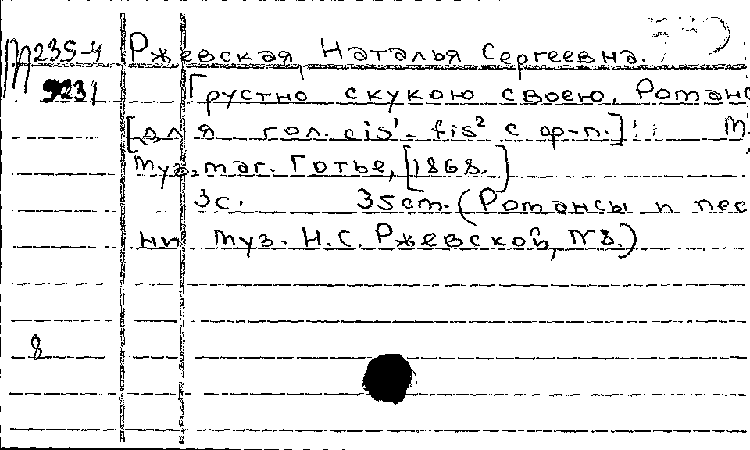 М235-4 Ржевская, Наталья Сергеевна.
9231 Грустно скукою своею. Романс
[для гол. cis¹-fis² с ф-п.] М.,
Муз. маг. Готье, [1868.]
3с. 35см. (Романсы и пес
ни муз. Н.С. Ржевской, №8.)
8